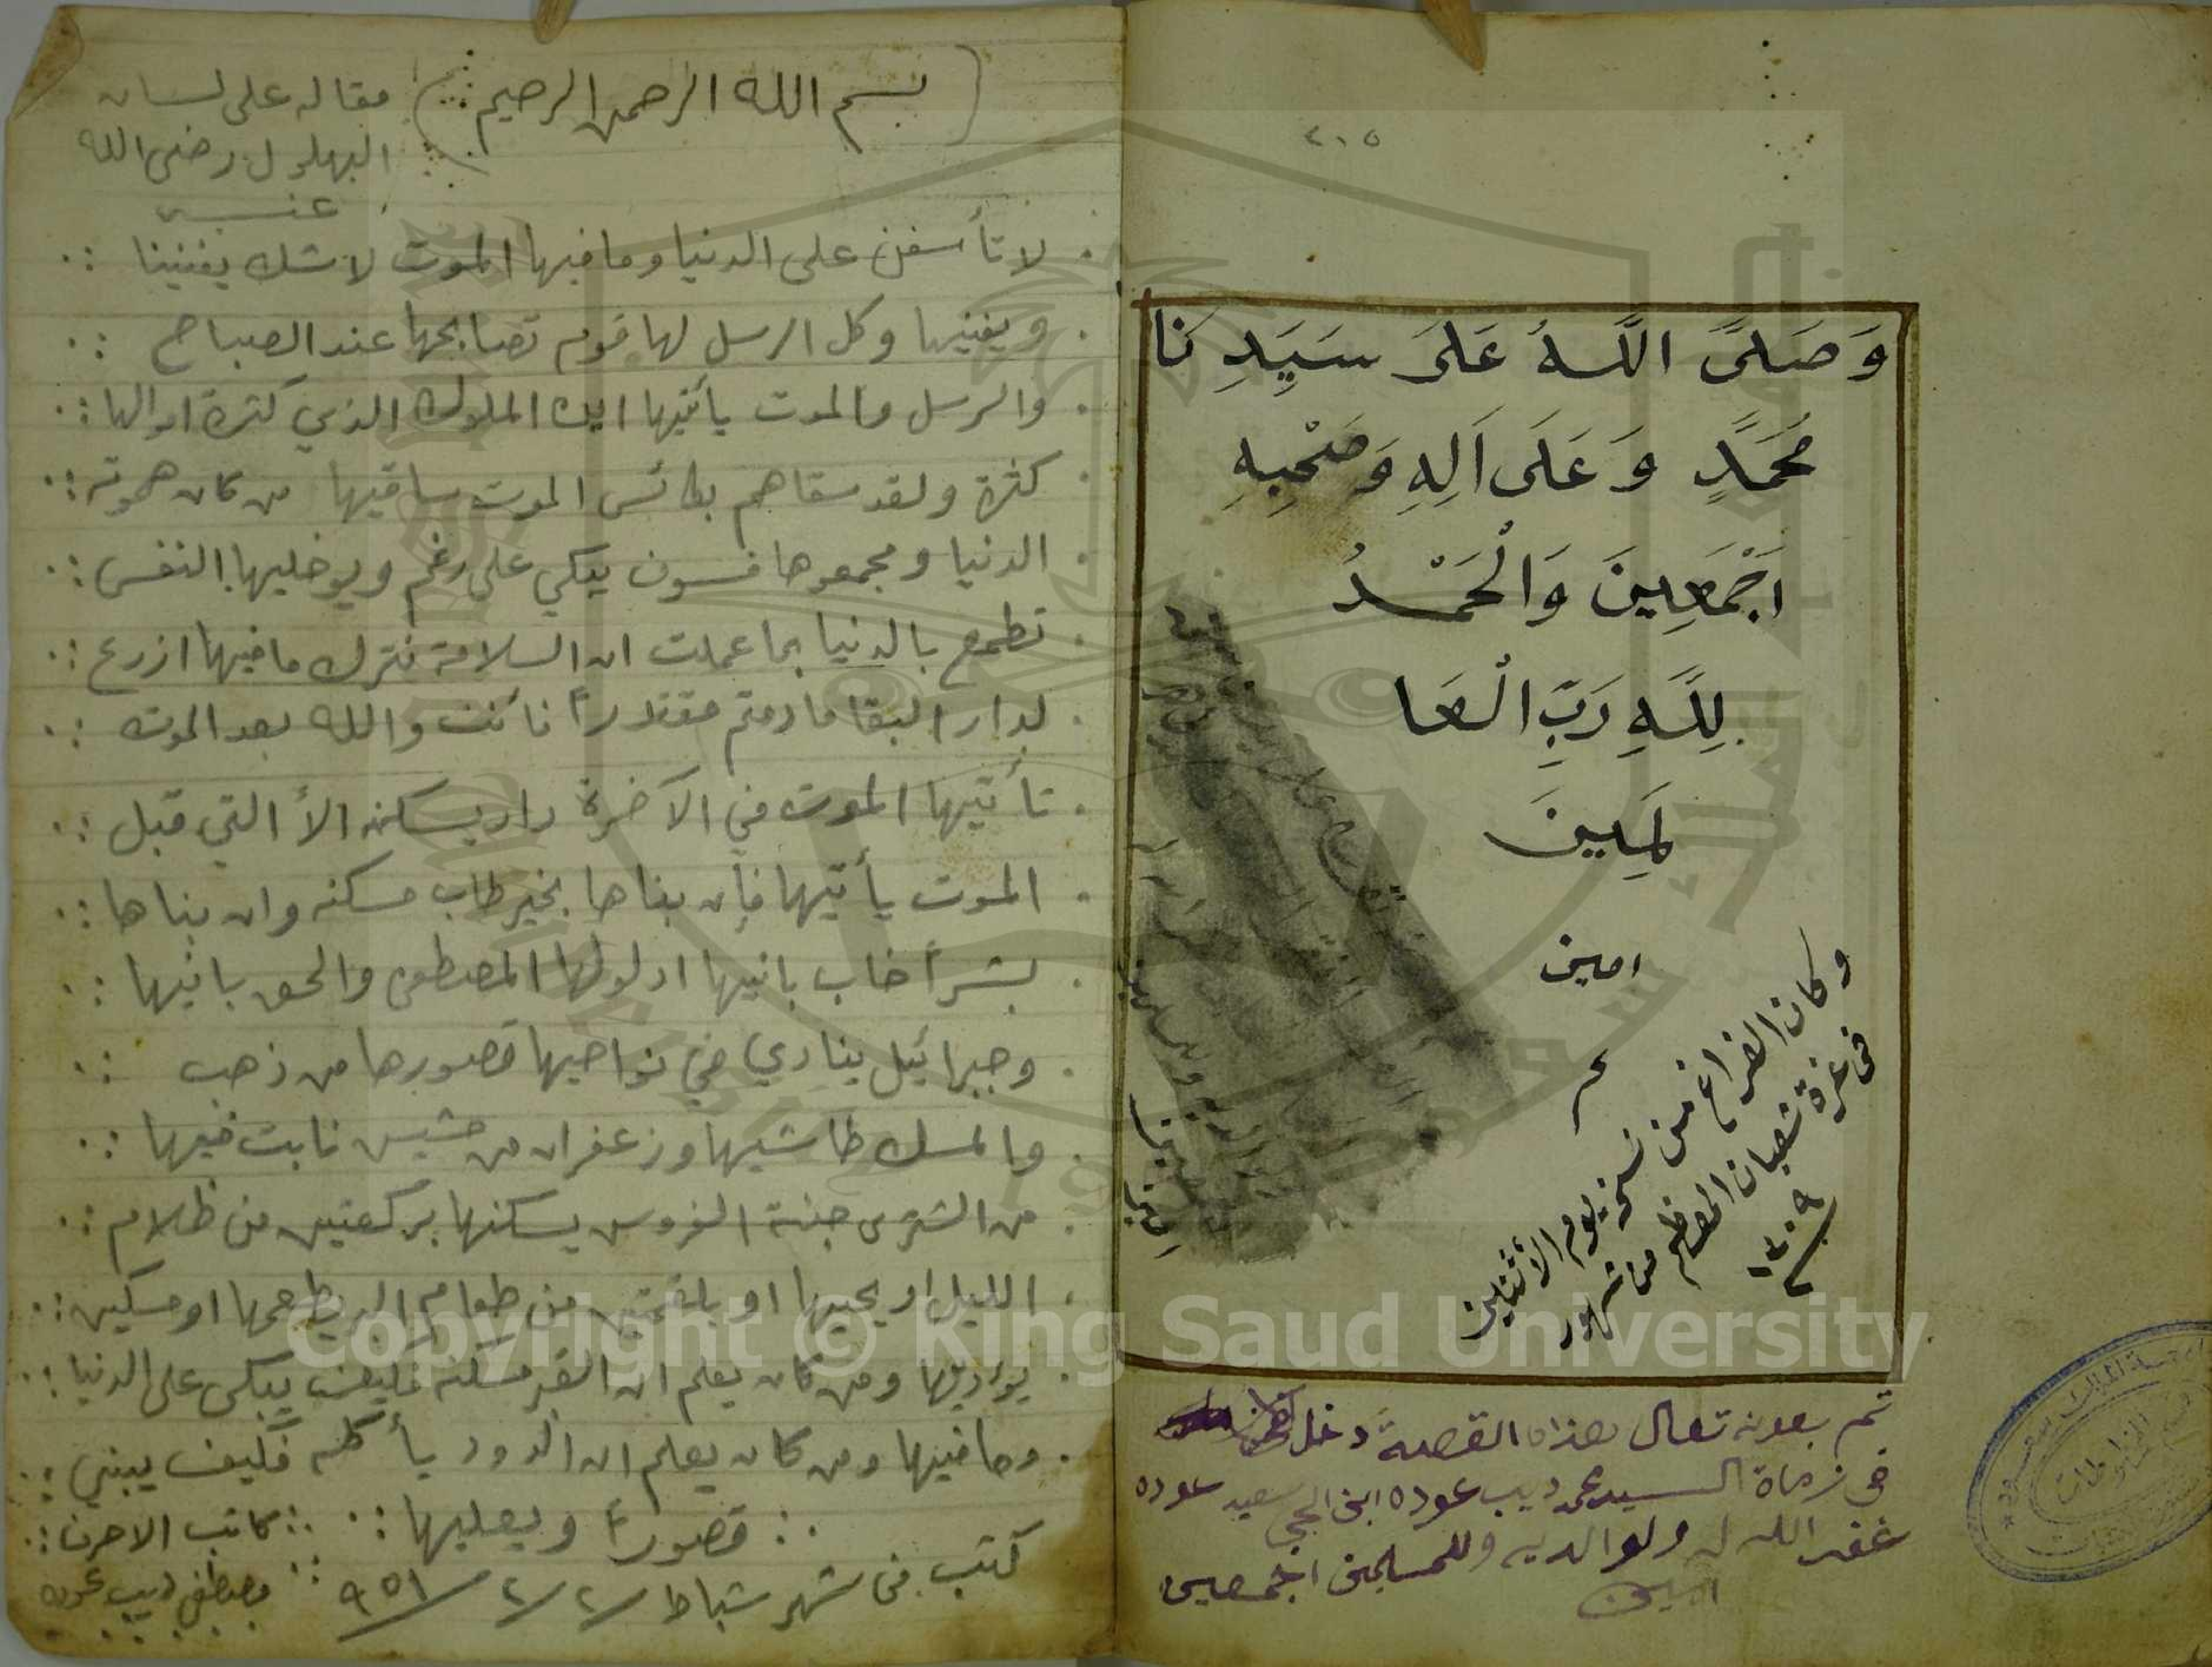 ٤١٥
وَصَلَىَّ اللَّهُ عَلَىَ سَيَدِنَا
مُحَمَدٍّ وَعَلَى اَلِهِ وَصَحْبِهِ
اَجْمَعِينَ وَالْحَمْدُ
لِلَّهِ رَبِّ الْعَا
لَمِينَ
امين
م
وكان الفراغ من نسخ يوم الأثنين
فى غرة شعبان المعظم من شهور
١٣٠٩
تم بعونه تعال هذاه القصة دخل
في زماة السيد محمد ديب عوده ابن الحجي سعيد عوده
غفر الله له ولوالديه وللمسلمين اجمعين
امين
(بسم الله الرحمن الرحيم)
مقاله على لسان
البهلول رضى الله
عنه
لا تأسفن على الدنيا وما فيها الموت لا شك يفنينا
ويفنيها وكل الرسل لها قوم تصابحها عند الصباح
والرسل والموت يأتيها اين الملوك الذي كثرة اموالها
كثرة ولقد سقاهم بكائس الموت ساقيها من كان هموته
الدنيا ومجمعوها فسوف يبكي على رغم ويوخليها النفس
تطمع بالدنيا بما عملت ان السلامة فترك ما فيها ازرع
لدار البقا ما دمتم مقتدراً نا كنت والله بعد الموت
تأتيها الموت في الآخرة دار يسكنه الأ التي قبل
الموت يأتيها فإن بناها بخير طاب مسكنه وان بناها
بشراً خاب بانيها ادلولها المصطفى والحق بانيها
وجبرائيل ينادي في نواحيها قصورها من ذهب
والمسك طاشيها وزعفران من حشيس نابت فيها
من الشترى جنة الفروس يسكنها بركعتين من ظلام
الليل او يحييها او بلقمتين من طعام البر يطعمها او مسكين
يوارينها ومن كان يعلم ان القبر مسكنه فكيف يبكى على الدنيا
وما فيها ومن كان يعلم ان الدود يأكله فكيف يبني
قصوراً ويعليها
كاتب الاحرف
مصطفى ديب عوده
كتب فى شهر شباط ٢/٢/٩٥١
Copyright © King Saud University